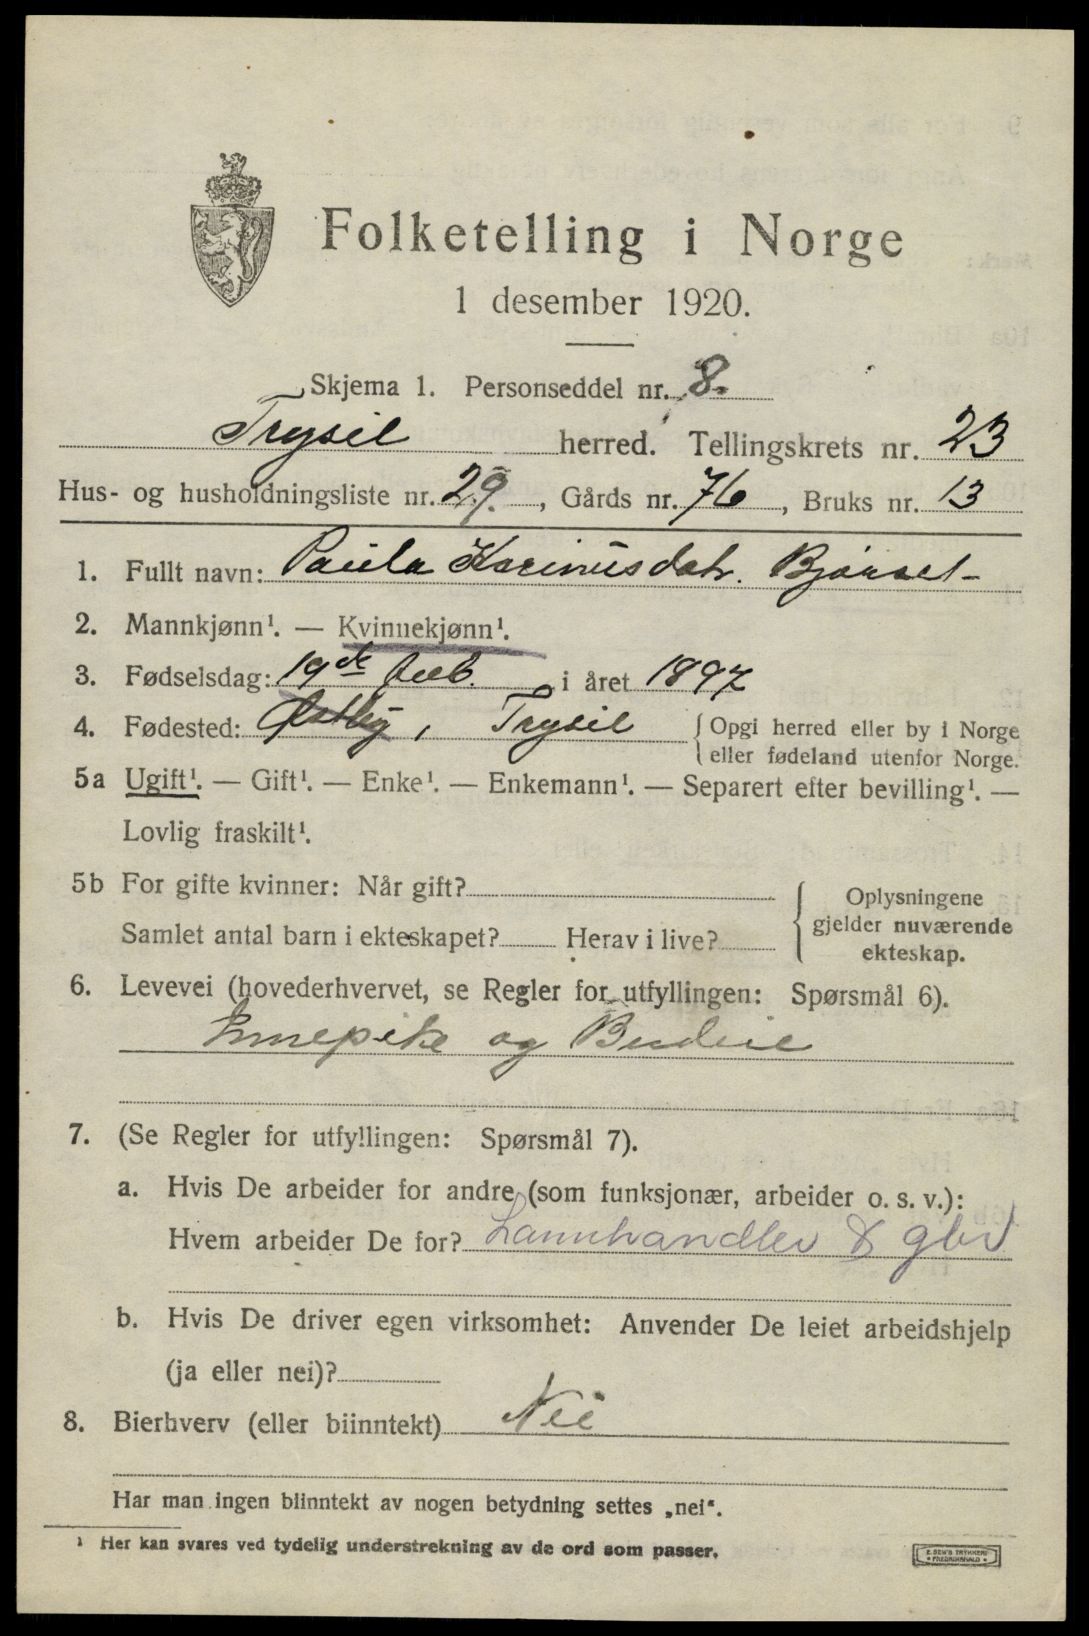 Folketelling i Norge
1 desember 1920.
Skjema 1. Personseddel nr. 8.
Trysil herred. Tellingskrets nr. 23
Hus- og husholdningsliste nr. 29. , Gårds nr. 76 , Bruks nr. 13
1. Fullt navn: Paula Karinusdatr.
2. Mannkjønn¹. — Kvinnekjønn¹.
3. Fødselsdag: 19de i året 1897
4. Fødested: Østby, Trysil { Opgi herred eller by i Norge
eller fødeland utenfor Norge.
5a Ugift¹. — Gift¹. — Enke¹. — Enkemann¹. — Separert efter bevilling¹. —
Lovlig fraskilt¹.
5b For gifte kvinner: Når gift?
Samlet antal barn i ekteskapet? Herav i live?
Oplysningene
gjelder nuværende
ekteskap.
6. Levevei (hovederhvervet, se Regler for utfyllingen: Spørsmål 6).
Innepike og Budeie
7. (Se Regler for utfyllingen: Spørsmål 7).
a. Hvis De arbeider for andre (som funksjonær, arbeider o. s. v.):
Hvem arbeider De for? Lannhandler & gbr
b. Hvis De driver egen virksomhet: Anvender De leiet arbeidshjelp
(ja eller nei)?
8. Bierhverv (eller biinntekt) Nei
Har man ingen biinntekt av nogen betydning settes „nei“.
¹ Her kan svares ved tydelig understrekning av de ord som passer.
E. SEM'S TRYKKERI
FREDRIKSHALD